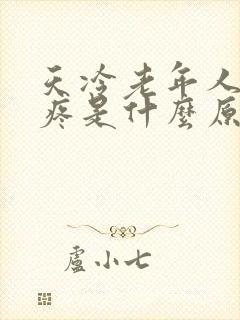 天冷老年人
疼是什麼原
盧小七